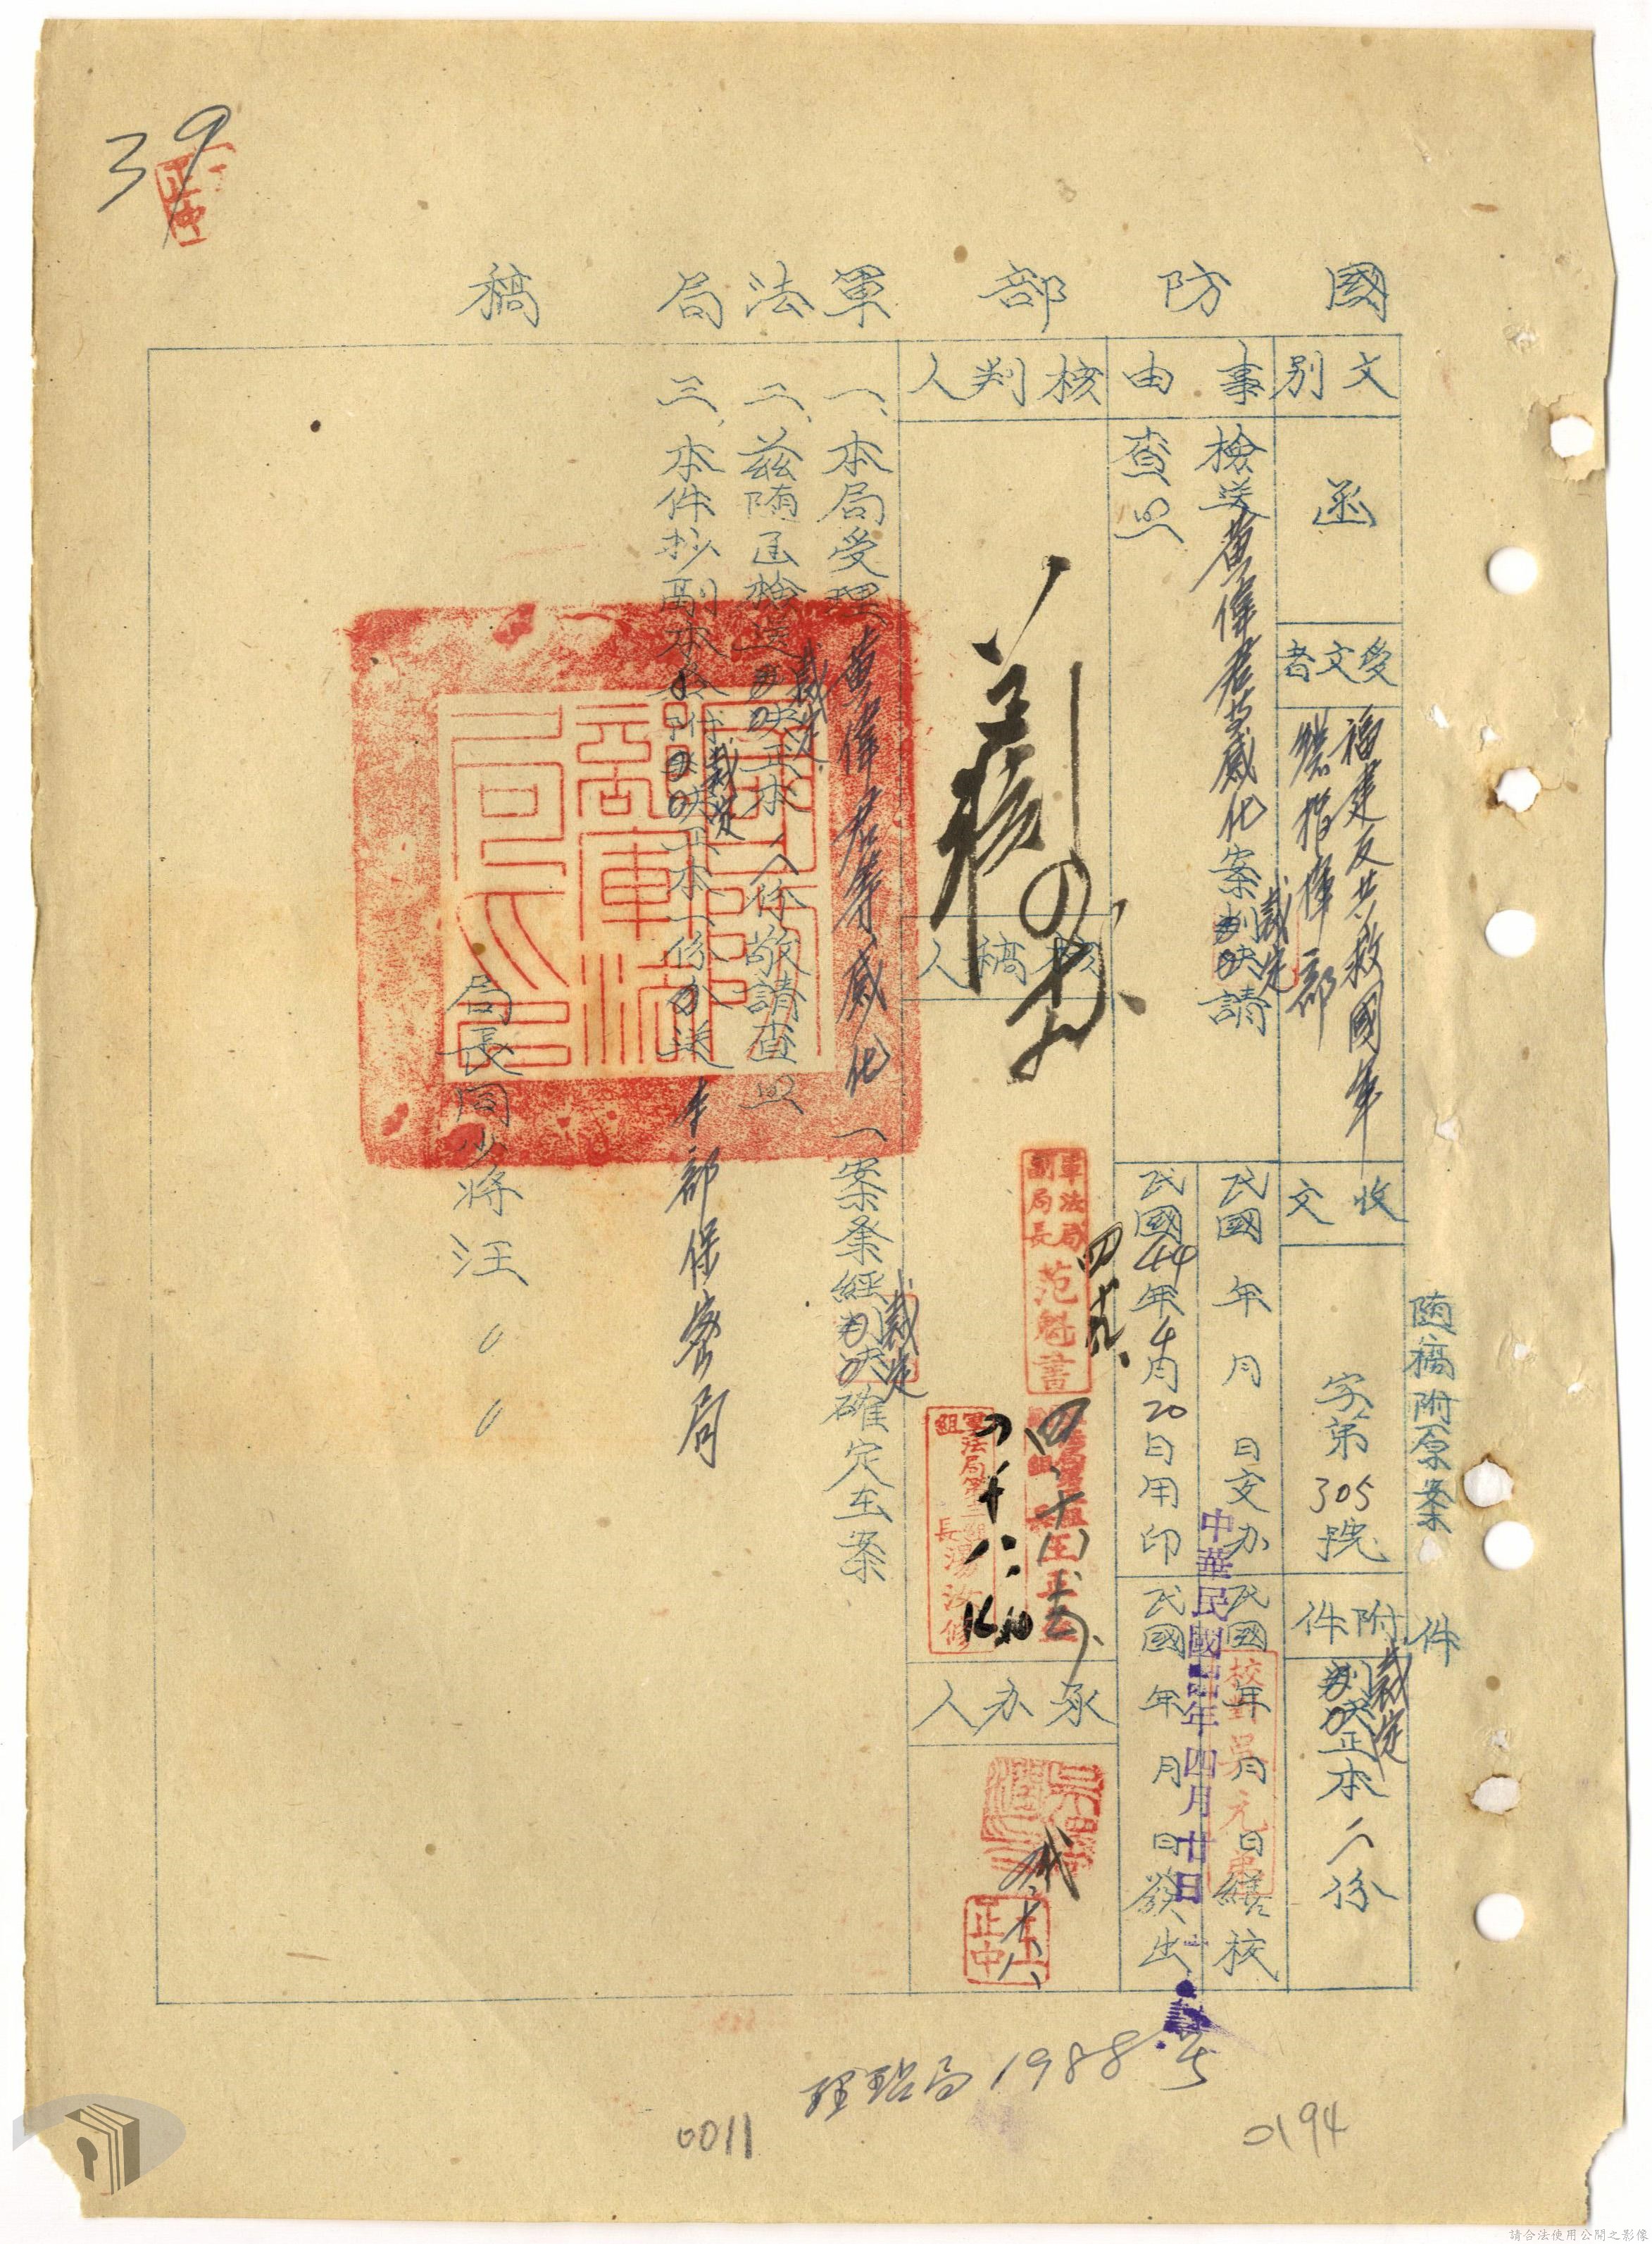 39
國防部軍法局稿
隨稿附原案 件
文別
函
受文者
福建反共救國軍
總指揮部
收文
字第305號
附件
裁定
正本二份
事由
檢送黃偉君等感化案裁定請
查照
民國 年 月 日交办
民國44年4月20日用印
民國 年 月 日繕校
民國 年 月 日發出
中華民國四四年四月廿日
校對吳元
核判人
核稿人
軍法局
副局長
范魁書
四、十九、
軍法局第二組
組長
湯汝修
承办人
王正中
一、本局受理黃偉君等感化一案業經裁定確定在案
二、茲隨函檢送裁定正本二份敬請查照
三、本件抄副本及附裁定正本一份分送本部保密局
局長同少將汪〃〃
軍法局
正中
1988
0011
0194
請合法使用公開之影像